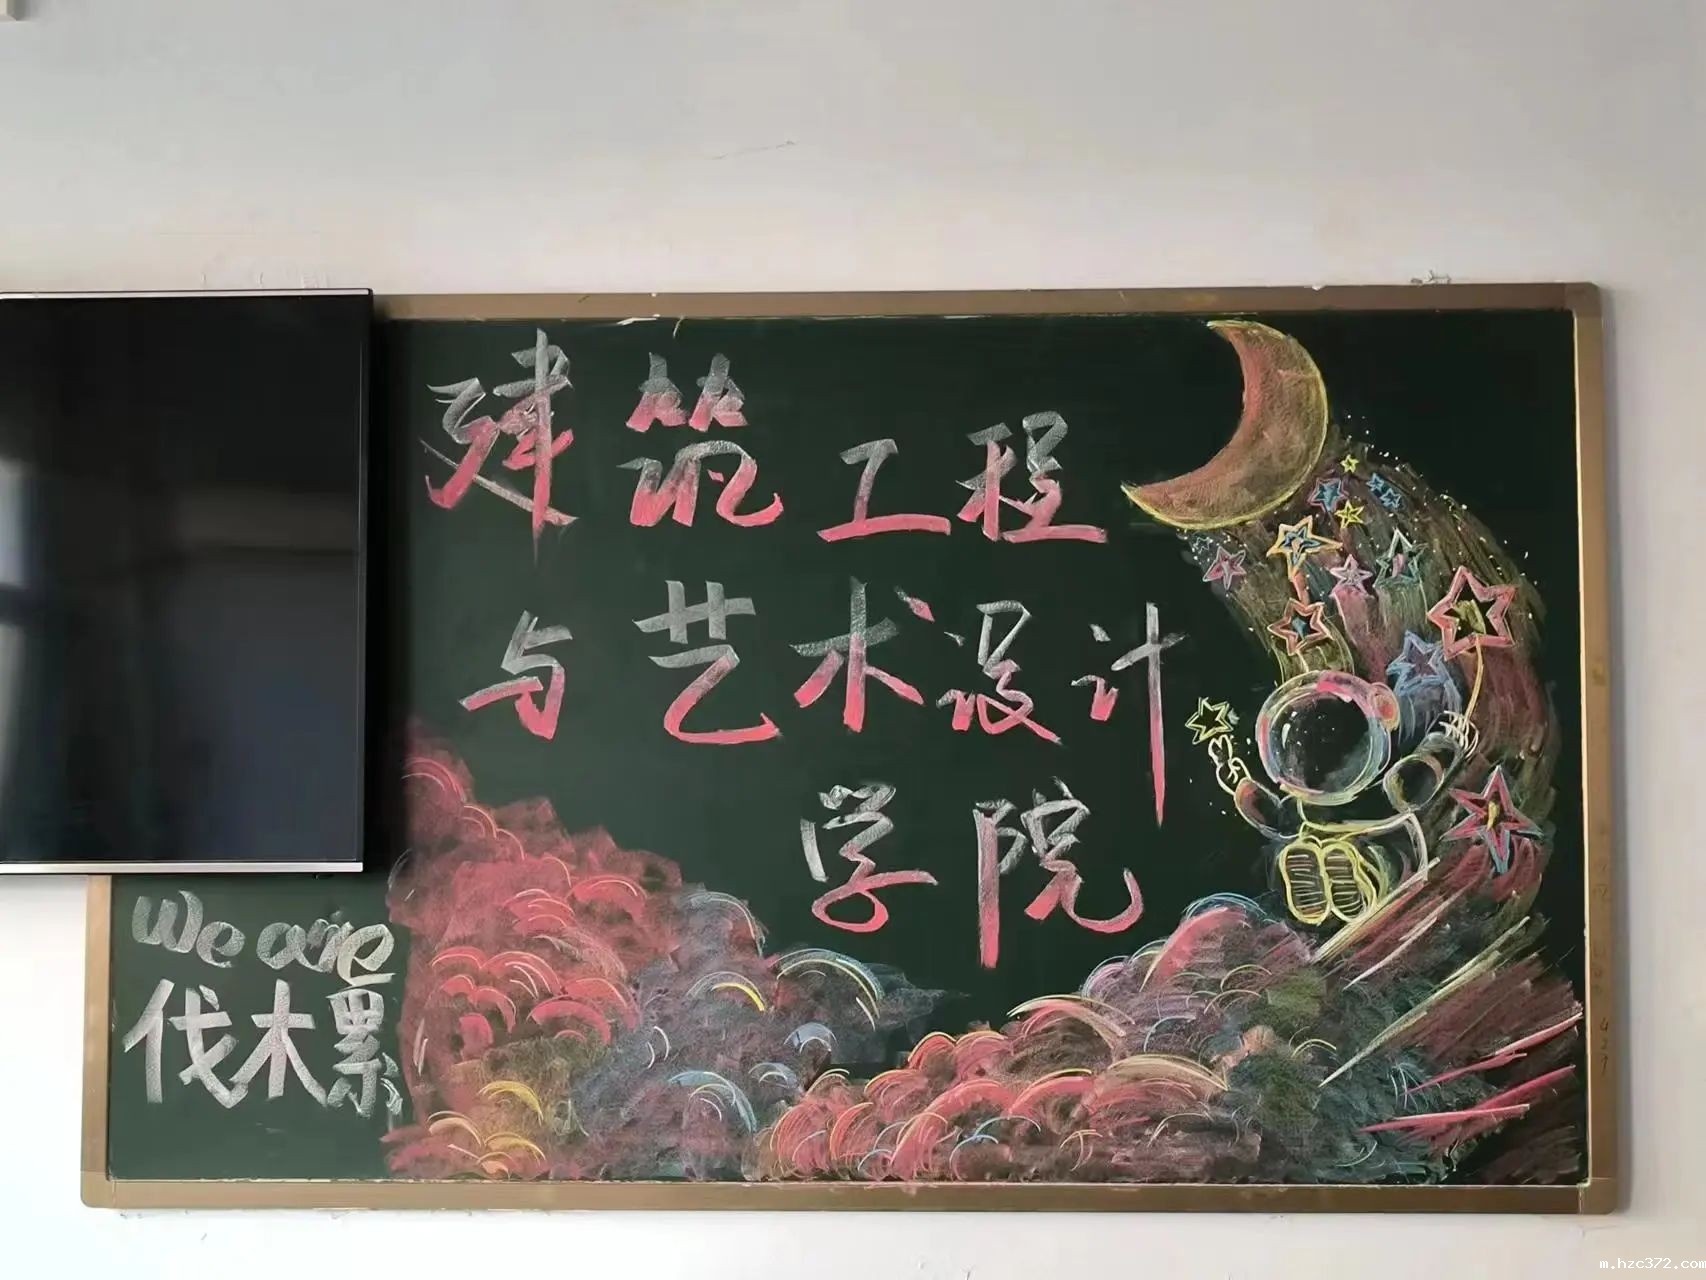 建筑工程
与艺术设计
学院
We are
伐木累
m.hzc372.com